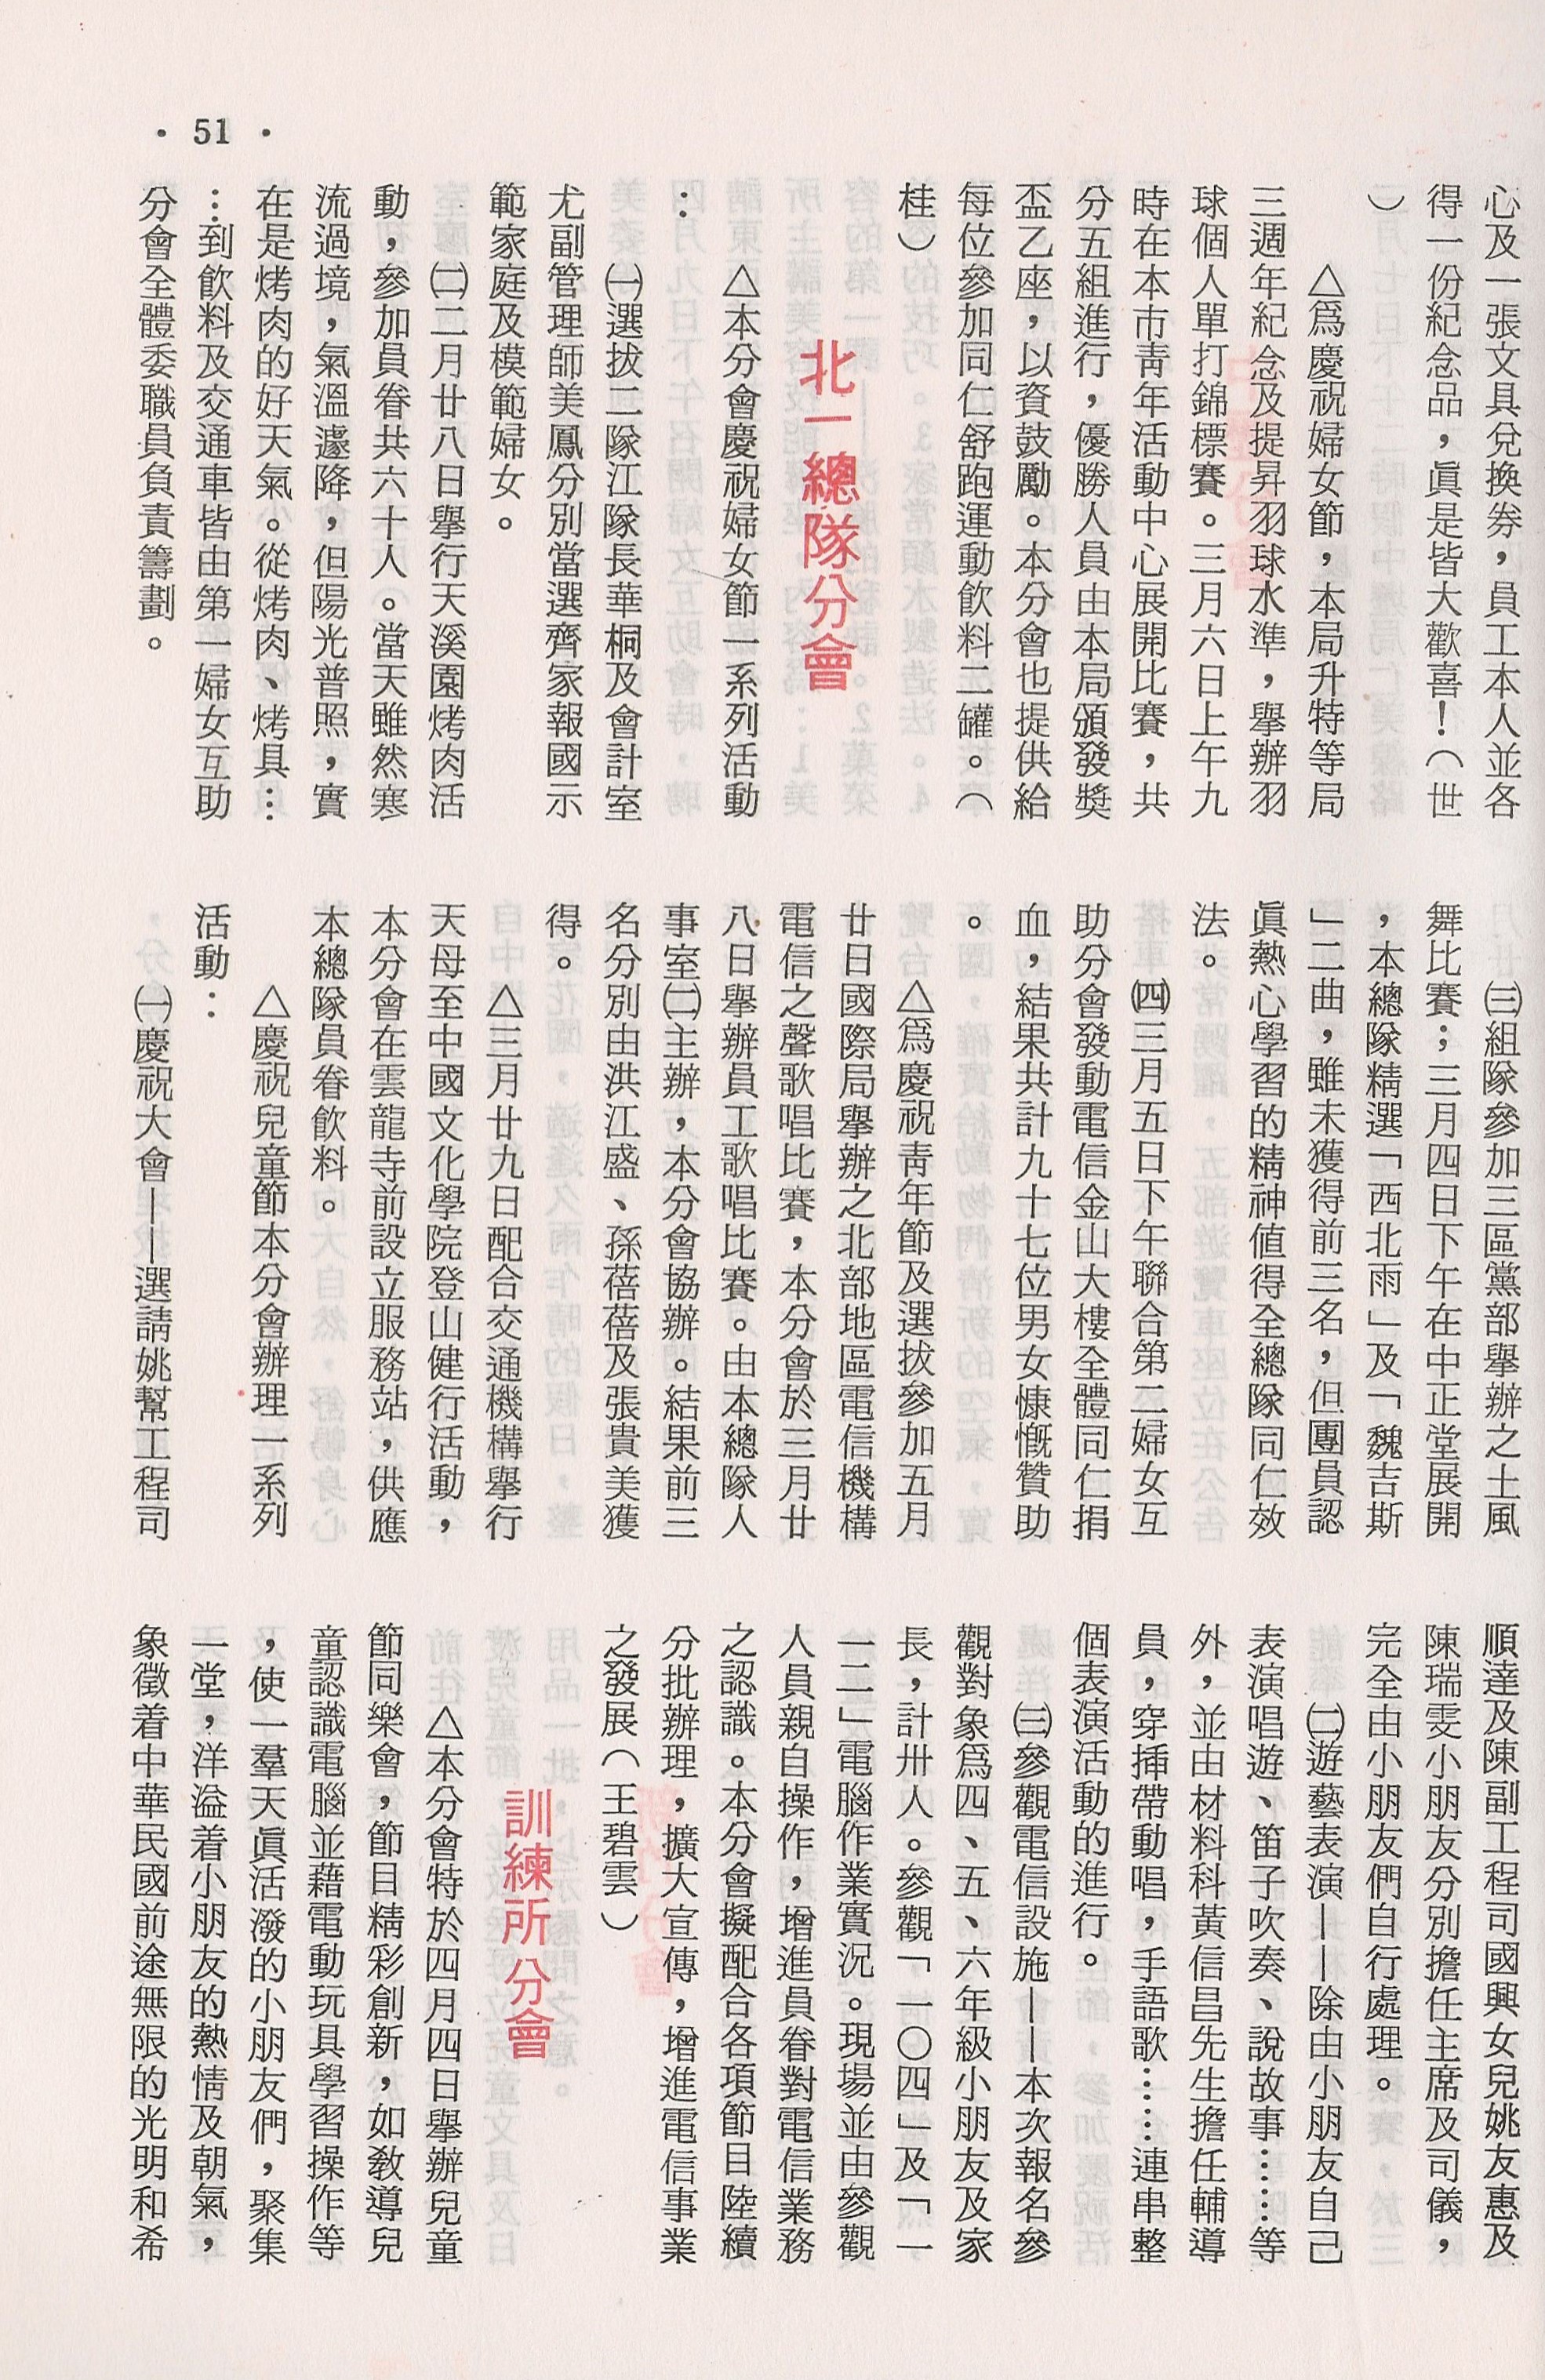 心及一張文具兌換券，員工本人並各
得一份紀念品，眞是皆大歡喜！（世
）
△爲慶祝婦女節，本局升特等局
三週年紀念及提昇羽球水準，舉辦羽
球個人單打錦標賽。三月六日上午九
時在本市靑年活動中心展開比賽，共
分五組進行，優勝人員由本局頒發獎
盃乙座，以資鼓勵。本分會也提供給
每位參加同仁舒跑運動飲料二罐。（
桂）
北一總隊分會
△本分會慶祝婦女節一系列活動
：
㈠選拔二隊江隊長華桐及會計室
尤副管理師美鳳分別當選齊家報國示
範家庭及模範婦女。
㈡二月廿八日舉行天溪園烤肉活
動，參加員眷共六十人。當天雖然寒
流過境，氣溫遽降，但陽光普照，實
在是烤肉的好天氣。從烤肉、烤具…
…到飲料及交通車皆由第一婦女互助
分會全體委職員負責籌劃。
㈢組隊參加三區黨部舉辦之土風
舞比賽；三月四日下午在中正堂展開
，本總隊精選「西北雨」及「魏吉斯
」二曲，雖未獲得前三名，但團員認
眞熱心學習的精神值得全總隊同仁效
法。
㈣三月五日下午聯合第二婦女互
助分會發動電信金山大樓全體同仁捐
血，結果共計九十七位男女慷慨贊助
。
△爲慶祝靑年節及選拔參加五月
廿日國際局舉辦之北部地區電信機構
電信之聲歌唱比賽，本分會於三月廿
八日舉辦員工歌唱比賽。由本總隊人
事室㈡主辦，本分會協辦。結果前三
名分別由洪江盛、孫蓓蓓及張貴美獲
得。
△三月廿九日配合交通機構舉行
天母至中國文化學院登山健行活動，
本分會在雲龍寺前設立服務站，供應
本總隊員眷飲料。
△慶祝兒童節本分會辦理一系列
活動：
㈠慶祝大會——選請姚幫工程司
順達及陳副工程司國興女兒姚友惠及
陳瑞雯小朋友分別擔任主席及司儀，
完全由小朋友們自行處理。
㈡遊藝表演——除由小朋友自己
表演唱遊、笛子吹奏、說故事……等
外，並由材料科黃信昌先生擔任輔導
員，穿揷帶動唱，手語歌……連串整
個表演活動的進行。
㈢參觀電信設施——本次報名參
觀對象爲四、五、六年級小朋友及家
長，計卅人。參觀「一〇四」及「一
一二」電腦作業實況。現場並由參觀
人員親自操作，增進員眷對電信業務
之認識。本分會擬配合各項節目陸續
分批辦理，擴大宣傳，增進電信事業
之發展（王碧雲）
訓練所分會
△本分會特於四月四日舉辦兒童
節同樂會，節目精彩創新，如敎導兒
童認識電腦並藉電動玩具學習操作等
，使一羣天眞活潑的小朋友們，聚集
一堂，洋溢着小朋友的熱情及朝氣，
象徵着中華民國前途無限的光明和希
• 51 •